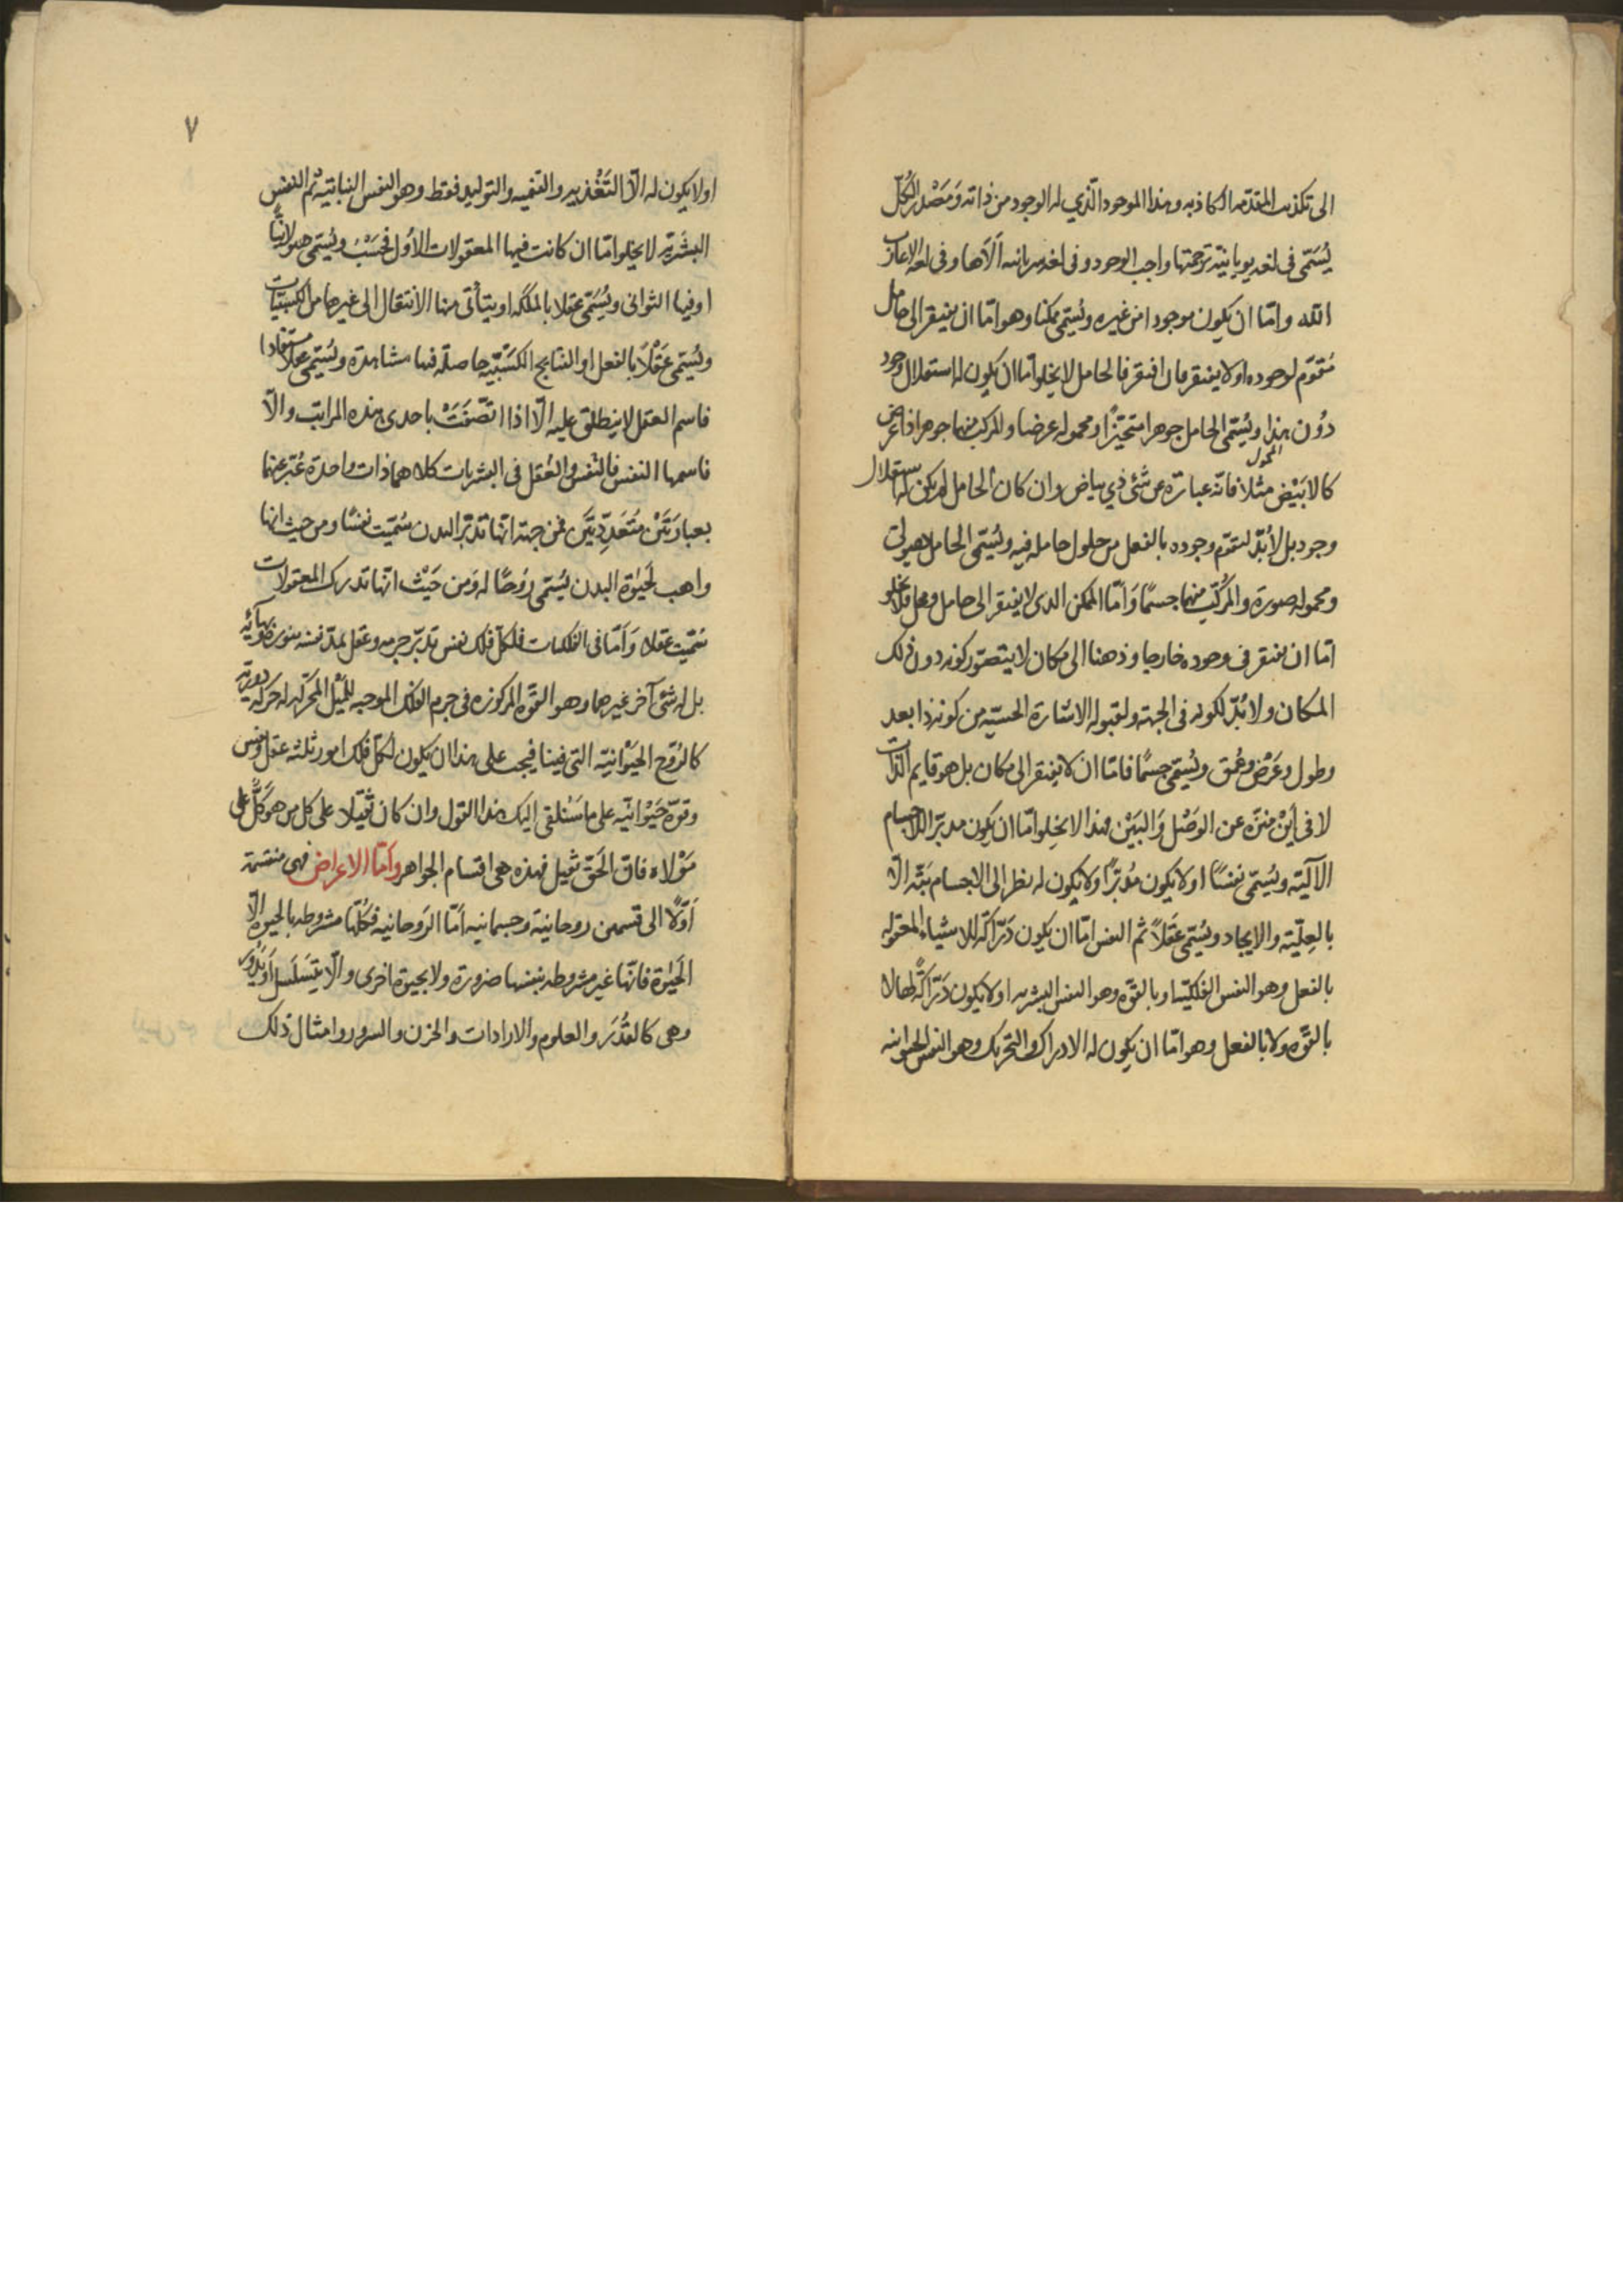 الى تكذيب المقدمه الكاذبه وهذا الموجود الّذي له الوجود من ذاته وَمَصْدر الكُلّ
يُسَمّى فى لغه يونانيّة ترجمتها واجب الوجود وفى لغه سريانيه آلاها وفى لغه الاعراب
اللّه وامّا ان يكون موجودا من غيره ويُسَمّى ممكنا وهو امّا ان يفتقر الى حامل
مُقوّم لوجوده او لا يفتقر فان افتقر فالحامل لا يخلو امّا ان يكون له استقلال وجود
دُون هذا ويُسَمّى الحامل جوهرا متحيّزًا ومحموله عرضا والمركب منهما جوهرا ذا عرض
كالابَيْض مثلا فانّه عبارة عن شئ ذي بياض وان كان الحامل لم يكن له المحمول استقلال
وجود بل لابُدّ لتقوّم وجوده بالفعل من حلول حامله فيه ويُسَمّى الحامل هيولى
ومحموله صورة والمُركّب منهما جسمًا وَامّا الممكن الذى لا يفتقر الى حامل ومحل فلا يخلو
امّا ان يفتقر فى وجوده خارجا وذهنا الى مكان لا يتصوّر كونه دون ذلك
المكان ولا بُدّ لكونه فى الجهة ولقبوله الاشارة الحسيّه من كونه ذا بعد
وطول وعَرْض وعُمق ويُسَمّى جسمًا فامّا ان لا يفتقر الى مكان بل هو قايم الذات
لا فى اَيْن منزّه عن الوَصْل وَالبَيْن وهذا لا يخلو امّا ان يكون مدبّر اللاجسام
الآليّه ويُسَمّى نفسًا او لا يكون مُدبّرًا ولا يكون له نظر الى الاجسام بتّه الّا
بالعِلّيّه والايجاد ويُسَمّى عَقلاً ثم النفس امّا ان يكون دَرّاكة للاشياء المعقوله
بالفعل وهو النفس الفلكيّه او بالقوّه وهو النفس البشريه او لا يكون دَرّاكةً لها لا
بالقوّه ولا بالفعل وهو امّا ان يكون له الادراك والتحريك وهو النفس الحيوانيه
٧
او لا يكون له الّا التَغْذيه والتنميه والتوليد فقط وهو النفس النباتيّه ثم النفس
البشَريّه لا يخلو امّا ان كانت فيها المعقولات الأوَل فحَسْبُ ويُسَمّى هيولانيًّا
او فيها الثوانى ويُسَمّى عقلا بالملكه او يتأتّى منها الانتقال الى غير حاصل الكسبيّات
ويُسَمّى عَقْلاً بالفعل او النتايج الكَسْبيّه حاصله فيها مشاهدة ويُسَمّى عقلا مستفادا
فاسم العقل لا ينطلق عليه الّا اذا اتّصَفَتْ باحدى هذه المراتب والّا
فاسمها النفس فالنفس والعُقل فى البشريات كلاهما ذات واحدة عُبّر عنها
بعبارَتَيْن مُتَعَدّدَتَيَن فمن جهة انّها تدبّر البدن سُمّيت نفسًا ومن حيث انها
واهب لَحيوة البدن يُسَمّى رُوحًا له وَمن حَيْث انّها تدرك المعقولات
سُمّيت عقلا وَامّا فى الفلكيات فلكلّ فلك نفس تدبّر جرمه وعقل يمدّ نفسه بنوره وبهائه
بل له شئ آخر غيرهما وهو القوّه المركوزه فى جرم الفلك الموجبه للمَيْل المحرّكه له حركه دوريّه
كالرُوح الحَيْوانيّه التى فينا فيجب على هذا ان يكون لكلّ فلك امور ثلثه عقل ونفس
وقوّة حَيْوانيّه على ما سَنُلقى اليك هذا القول وان كان ثقيلا على كل من هو كَلٌّ على
مَوْلاه فان الحَقّ ثقيل فهذه هى اقسام الجواهر وامّا الاعراض فهى منقسمة
اَوّلاً الى قسمين روحانية وجسمانيه اَمّا الرَوحانيه فكُلّها مشروطه بالحيوة الّا
الحَيوة فانّها غير مشروطه بنفسها ضرورة ولا بحيوة اخرى والّا يَتَسَلسَل اَوْ يَدُور
وهى كالقُدَر والعلوم والارادات والحزن والسرور وامثال ذلك